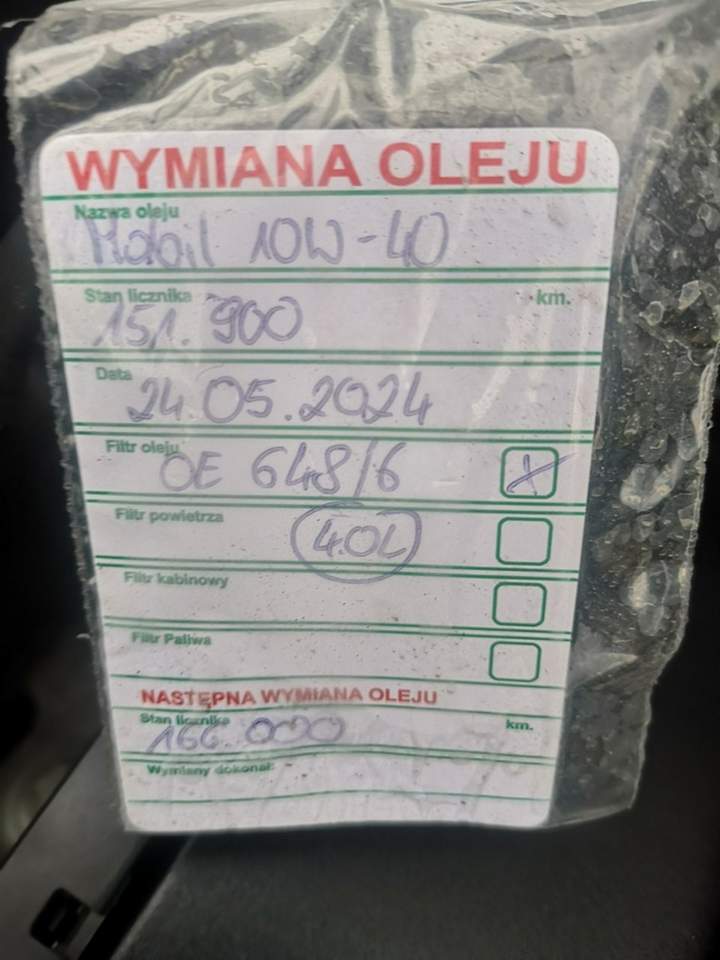 WYMIANA OLEJU
Nazwa oleju
Mobil 10W-40
Stan licznika km.
151.900
Data
24.05.2024
Filtr oleju
OE 648/6 X
Filtr powietrza
4.0L
Filtr kabinowy
Filtr Paliwa
NASTĘPNA WYMIANA OLEJU
Stan licznika km.
166.000
Wymiany dokonał: